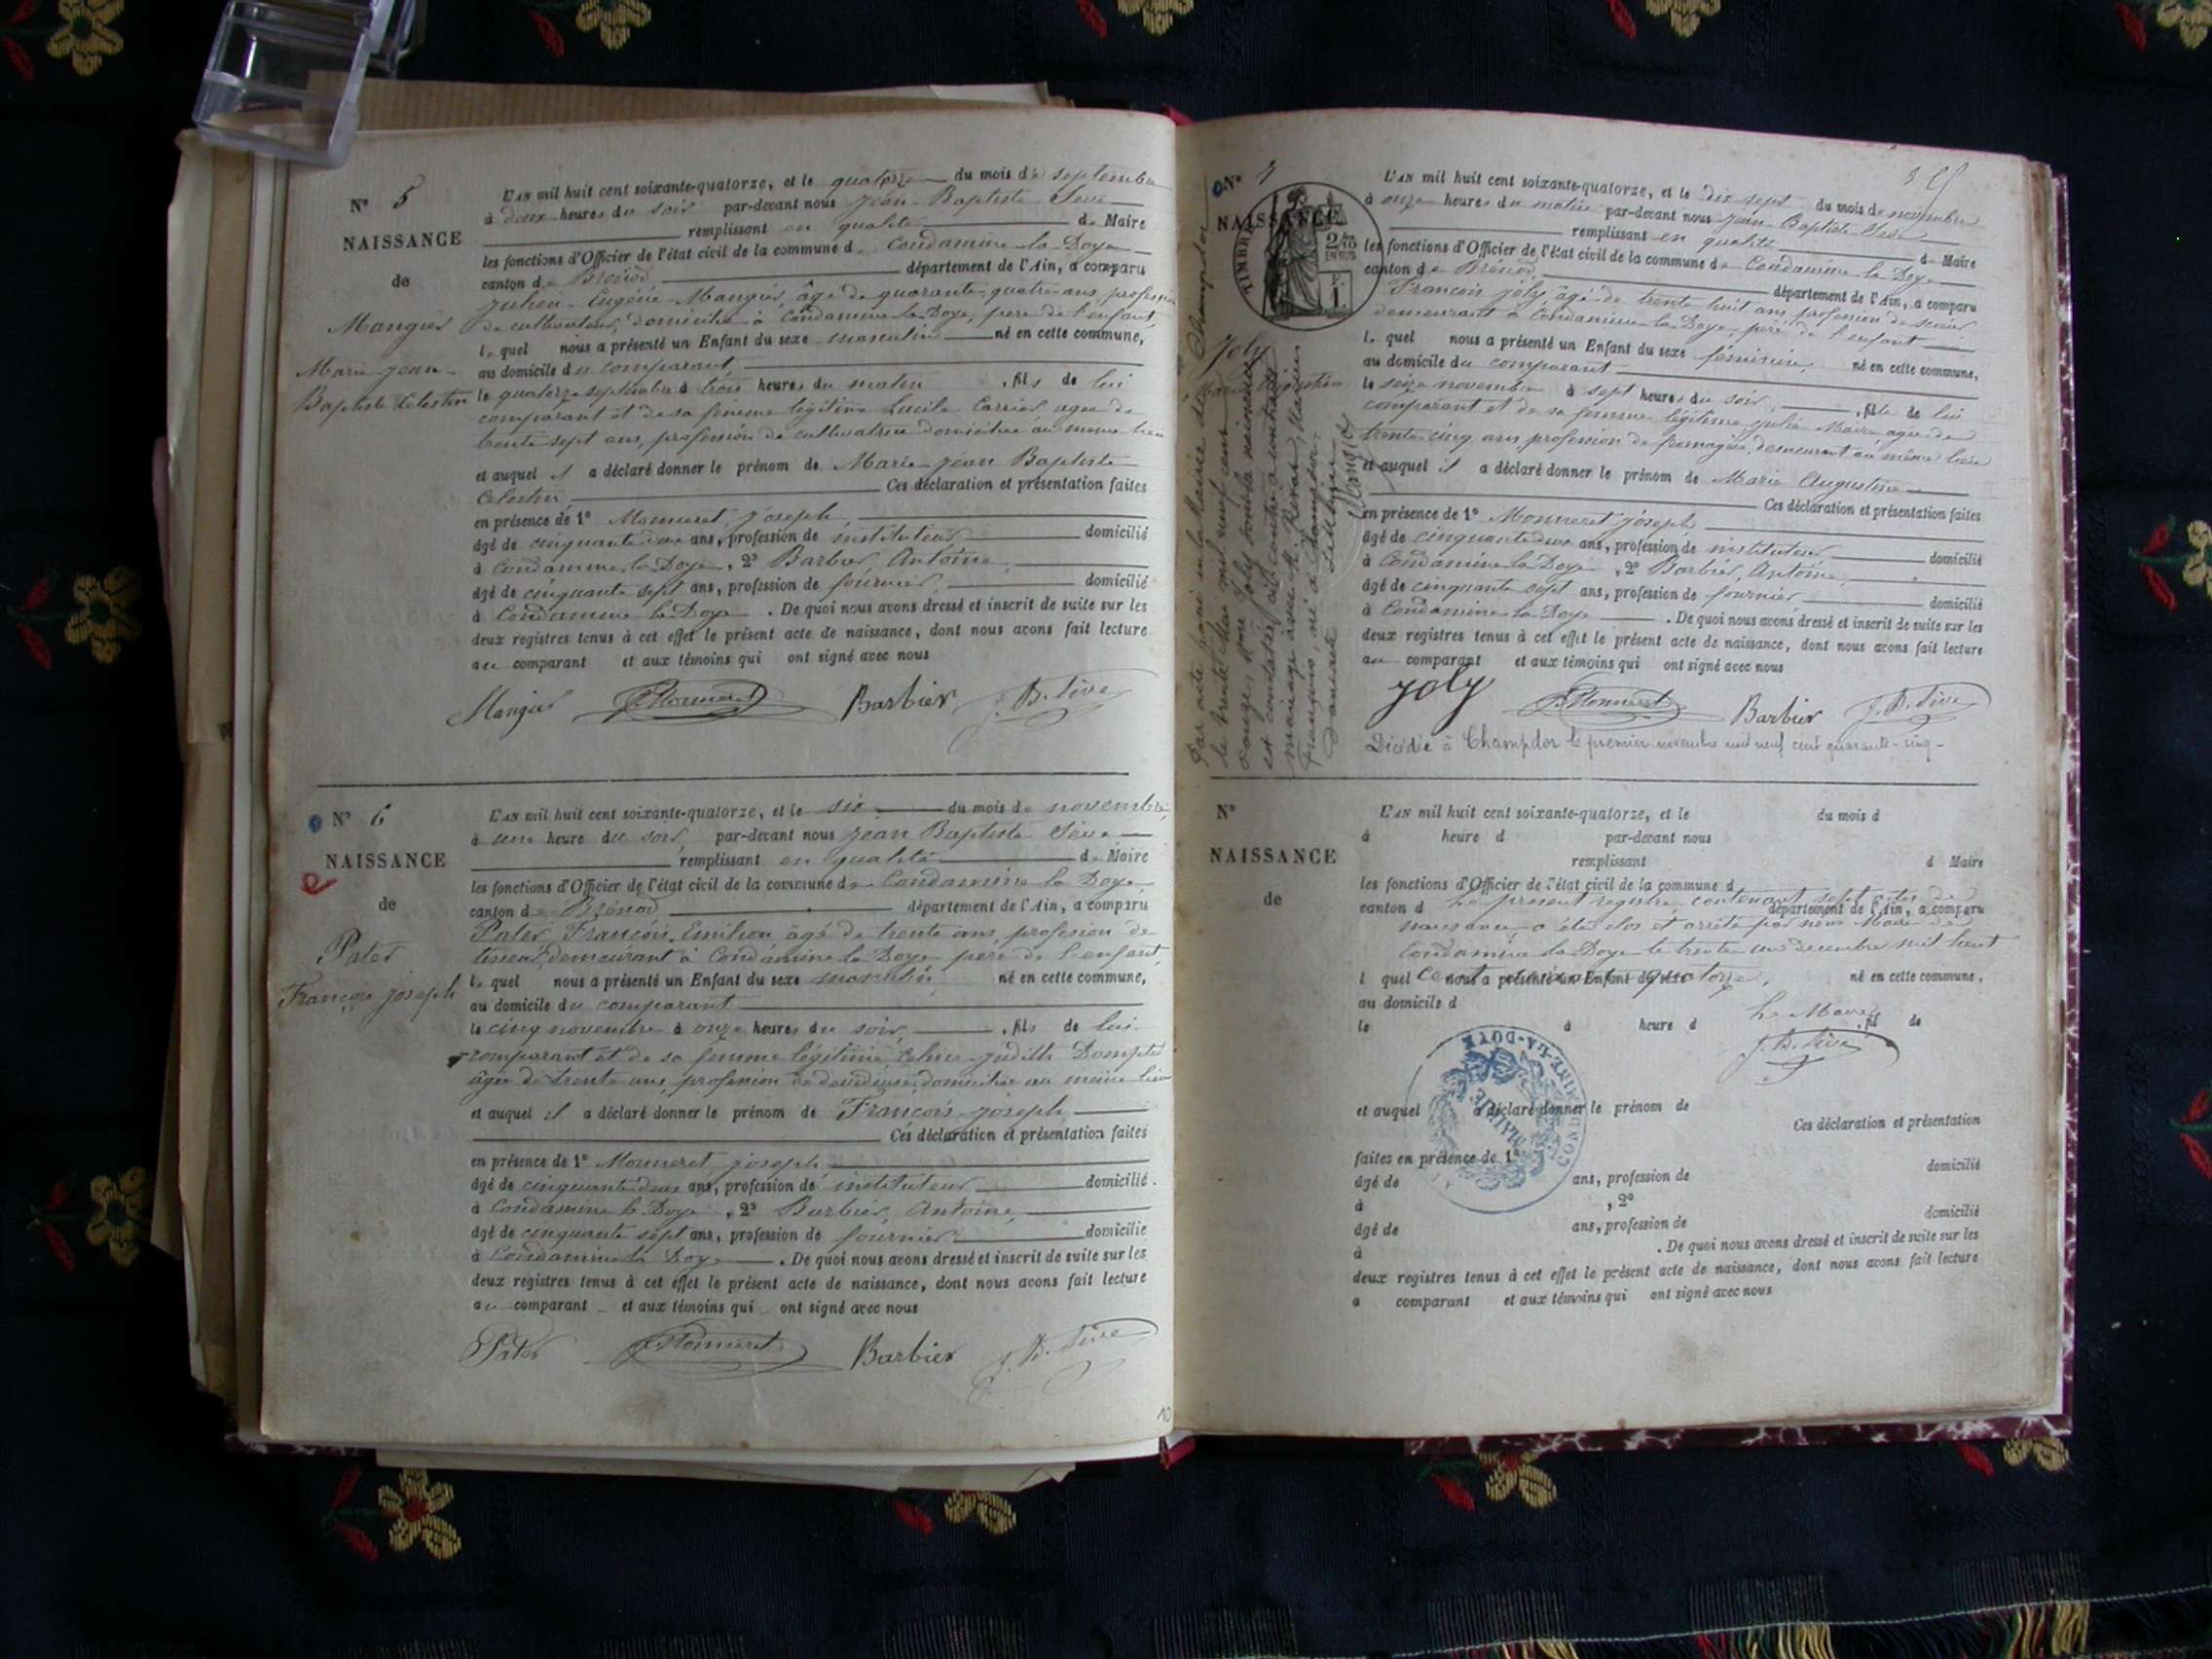 N° 5
NAISSANCE
de
Mangier
Marie Jean
Baptiste Celestin
L'AN mil huit cent soixante-quatorze, et le quatorze du mois de septembre
à deux heures du soir par-devant nous Jean-Baptiste Sève
remplissant en qualité de Maire
les fonctions d'Officier de l'état civil de la commune de Condamine la Doye
canton de Brénod département de l'Ain, a comparu
Julien-Eugénie Mangier, âgé de quarante-quatre ans, profession
de cultivateur, domicilié à Condamine la Doye, père de l'enfant,
lequel nous a présenté un Enfant du sexe masculin né en cette commune,
au domicile du comparant,
le quatorze septembre à trois heures du matin, fils de lui
comparant et de sa femme légitime Lucile Carrier âgée de
trente sept ans, profession de cultivatrice domiciliée au même lieu
et auquel il a déclaré donner le prénom de Marie-Jean Baptiste
Celestin Ces déclaration et présentation faites
en présence de 1° Monneret, Joseph,
âgé de cinquante deux ans, profession de instituteur domicilié
à Condamine la Doye, 2° Barbier, Antoine,
âgé de cinquante sept ans, profession de fournier, domicilié
à Condamine la Doye. De quoi nous avons dressé et inscrit de suite sur les
deux registres tenus à cet effet le présent acte de naissance, dont nous avons fait lecture
au comparant et aux témoins qui ont signé avec nous
Mangier Monneret Barbier J. B. Sève
N° 6
NAISSANCE
de
Pater
François Joseph
L'AN mil huit cent soixante-quatorze, et le six du mois de novembre
à une heure du soir, par-devant nous Jean Baptiste Sève
remplissant en qualité de Maire
les fonctions d'Officier de l'état civil de la commune de Condamine la Doye
canton de Brénod département de l'Ain, a comparu
Pater François Emilien âgé de trente ans, profession de
demeurant à Condamine la Doye père de l'enfant,
lequel nous a présenté un Enfant du sexe masculin, né en cette commune,
au domicile du comparant
le cinq novembre à onze heures du soir, fils de lui
comparant et de sa femme légitime Judith
âgée de trente ans, profession de domiciliée au même lieu
et auquel il a déclaré donner le prénom de François-Joseph
Ces déclaration et présentation faites
en présence de 1° Monneret Joseph
âgé de cinquante deux ans, profession de instituteur domicilié
à Condamine la Doye, 2° Barbier, Antoine,
âgé de cinquante sept ans, profession de fournier domicilié
à Condamine la Doye. De quoi nous avons dressé et inscrit de suite sur les
deux registres tenus à cet effet le présent acte de naissance, dont nous avons fait lecture
au comparant et aux témoins qui ont signé avec nous
Pater Monneret Barbier J. B. Sève
10
N° 7
NAISSANCE
TIMBRE
2/10
EN SUS
Joly
Marie Augustine
Par acte passé en la Mairie de Champdor
le trente mai mil neuf cent
Joly dont la naissance
est constatée ci-contre a contracté
mariage avec
François, né à Champdor
L'AN mil huit cent soixante-quatorze, et le dix sept du mois de novembre
à onze heures du matin par-devant nous Jean-Baptiste Sève
remplissant en qualité de Maire
les fonctions d'Officier de l'état civil de la commune de Condamine la Doye
canton de Brénod, département de l'Ain, a comparu
François Joly, âgé de trente huit ans, profession de
demeurant à Condamine la Doye père de l'enfant
lequel nous a présenté un Enfant du sexe féminin, né en cette commune,
au domicile du comparant
le seize novembre à sept heures du soir, fille de lui
comparant et de sa femme légitime Julie Maire, âgée de
trente-cinq ans profession de demeurant au même lieu
et auquel il a déclaré donner le prénom de Marie Augustine
Ces déclaration et présentation faites
en présence de 1° Monneret Joseph
âgé de cinquante deux ans, profession de instituteur domicilié
à Condamine la Doye, 2° Barbier, Antoine,
âgé de cinquante sept ans, profession de fournier domicilié
à Condamine la Doye. De quoi nous avons dressé et inscrit de suite sur les
deux registres tenus à cet effet le présent acte de naissance, dont nous avons fait lecture
au comparant et aux témoins qui ont signé avec nous
Joly Monneret Barbier J. B. Sève
Décédée à Champdor le premier novembre mil neuf cent quarante-cinq
N°
NAISSANCE
de
L'AN mil huit cent soixante-quatorze, et le du mois d
à heure d par-devant nous
remplissant d Maire
les fonctions d'Officier de l'état civil de la commune d
canton d département de l'Ain, a comparu
Le présent registre contenant sept actes de
naissance a été clos et arrêté par nous Maire de
Condamine la Doye le trente un décembre mil huit
cent soixante quatorze.
l quel nous a présenté un Enfant du sexe né en cette commune,
au domicile d
Le Maire
le à heure d , fil de
J. B. Sève
MAIRIE
et auquel a déclaré donner le prénom de
Ces déclaration et présentation
faites en présence de 1°
âgé de ans, profession de domicilié
à , 2°
âgé de ans, profession de domicilié
à . De quoi nous avons dressé et inscrit de suite sur les
deux registres tenus à cet effet le présent acte de naissance, dont nous avons fait lecture
a comparant et aux témoins qui ont signé avec nous